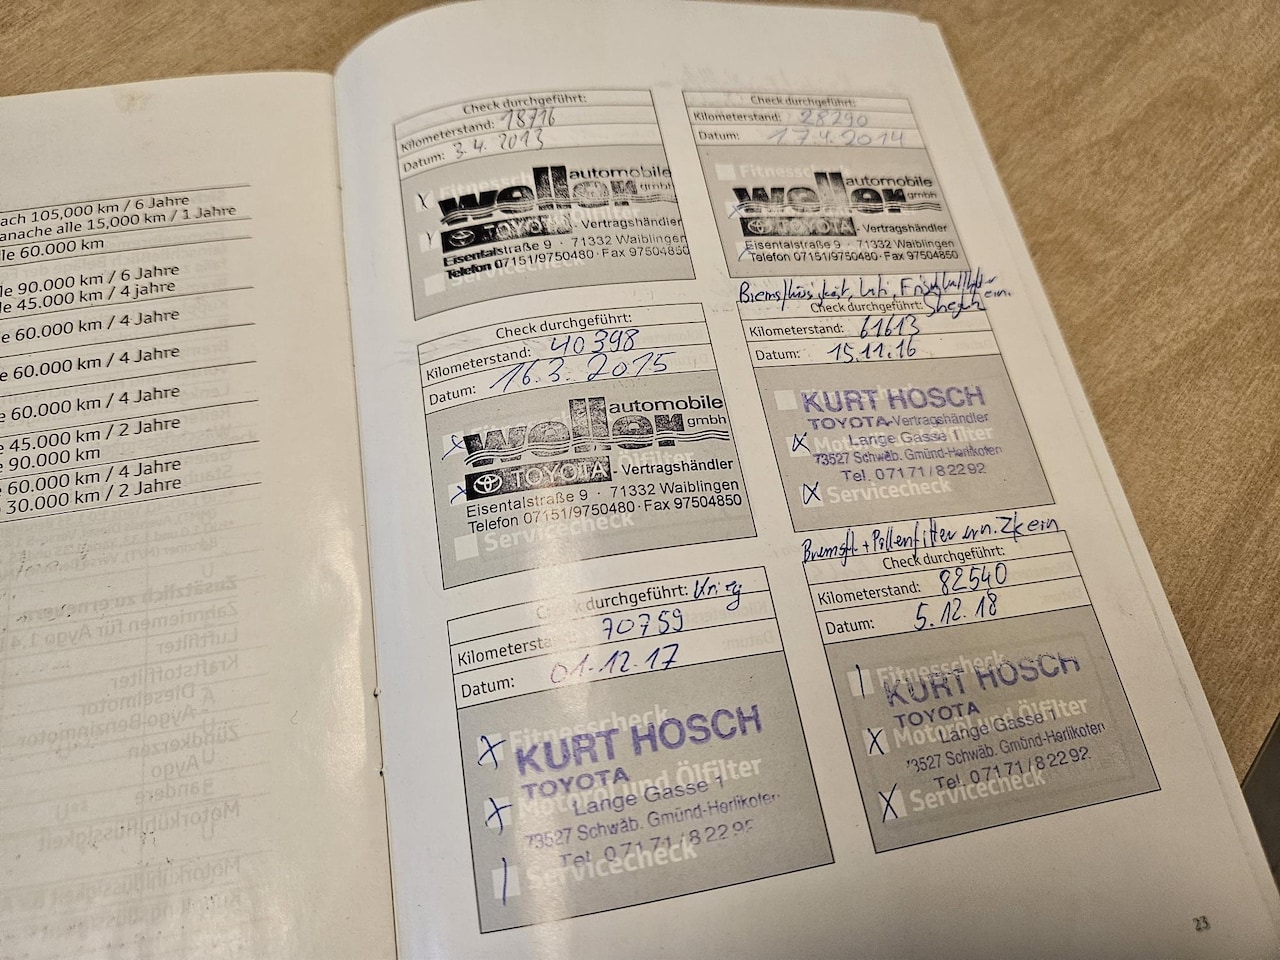 ach 105,000 km / 6 Jahre
anache alle 15,000 km / 1 Jahre
lle 60.000 km
le 90.000 km / 6 Jahre
le 45.000 km / 4 jahre
e 60.000 km / 4 Jahre
e 60.000 km / 4 Jahre
e 60.000 km / 4 Jahre
e 45.000 km / 2 Jahre
e 90.000 km
e 60.000 km / 4 Jahre
30.000 km / 2 Jahre
Check durchgeführt:
Kilometerstand: 18716
Datum: 3.4.2013
Fitnesscheck
weller automobile gmbh
TOYOTA - Vertragshändler
Eisentalstraße 9 · 71332 Waiblingen
Telefon 07151/9750480 · Fax 97504850
Servicecheck
Check durchgeführt:
Kilometerstand: 28290
Datum: 17.4.2014
Fitnesscheck
weller automobile gmbh
TOYOTA - Vertragshändler
Eisentalstraße 9 · 71332 Waiblingen
Telefon 07151/9750480 · Fax 97504850
Check durchgeführt:
Kilometerstand: 40398
Datum: 16.3.2015
weller automobile gmbh
Ölfilter
TOYOTA - Vertragshändler
Eisentalstraße 9 · 71332 Waiblingen
Telefon 07151/9750480 · Fax 97504850
Servicecheck
Bremsflüssigkeit,
Check durchgeführt:
Kilometerstand: 61613
Datum: 15.11.16
KURT HOSCH
TOYOTA-Vertragshändler
Lange Gasse 1
73527 Schwäb. Gmünd-Herlikofen
Tel. 07171/82292
Servicecheck
Check durchgeführt:
Kilometerstand: 70759
Datum: 01.12.17
Fitnesscheck
KURT HOSCH
TOYOTA
Motoröl und Ölfilter
Lange Gasse 1
73527 Schwäb. Gmünd-Herlikofen
Tel. 07171/82292
Servicecheck
Bremsfl. + Pollenfilter ern.
Check durchgeführt:
Kilometerstand: 82540
Datum: 5.12.18
Fitnesscheck
KURT HOSCH
TOYOTA
Motoröl und Ölfilter
Lange Gasse 1
73527 Schwäb. Gmünd-Herlikofen
Tel. 07171/82292
Servicecheck
23